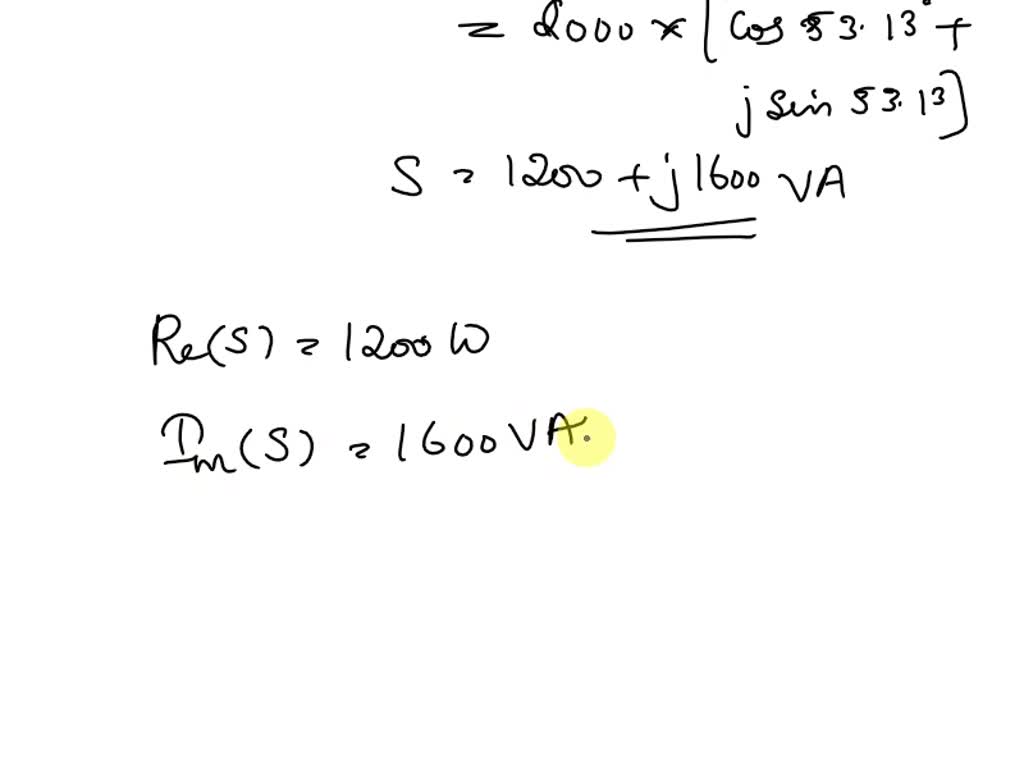 = 2000 × [cos 53.13° +
j sin 53.13]
S = 1200 + j1600 VA
Re(S) = 1200 W
Im(S) = 1600 VA.